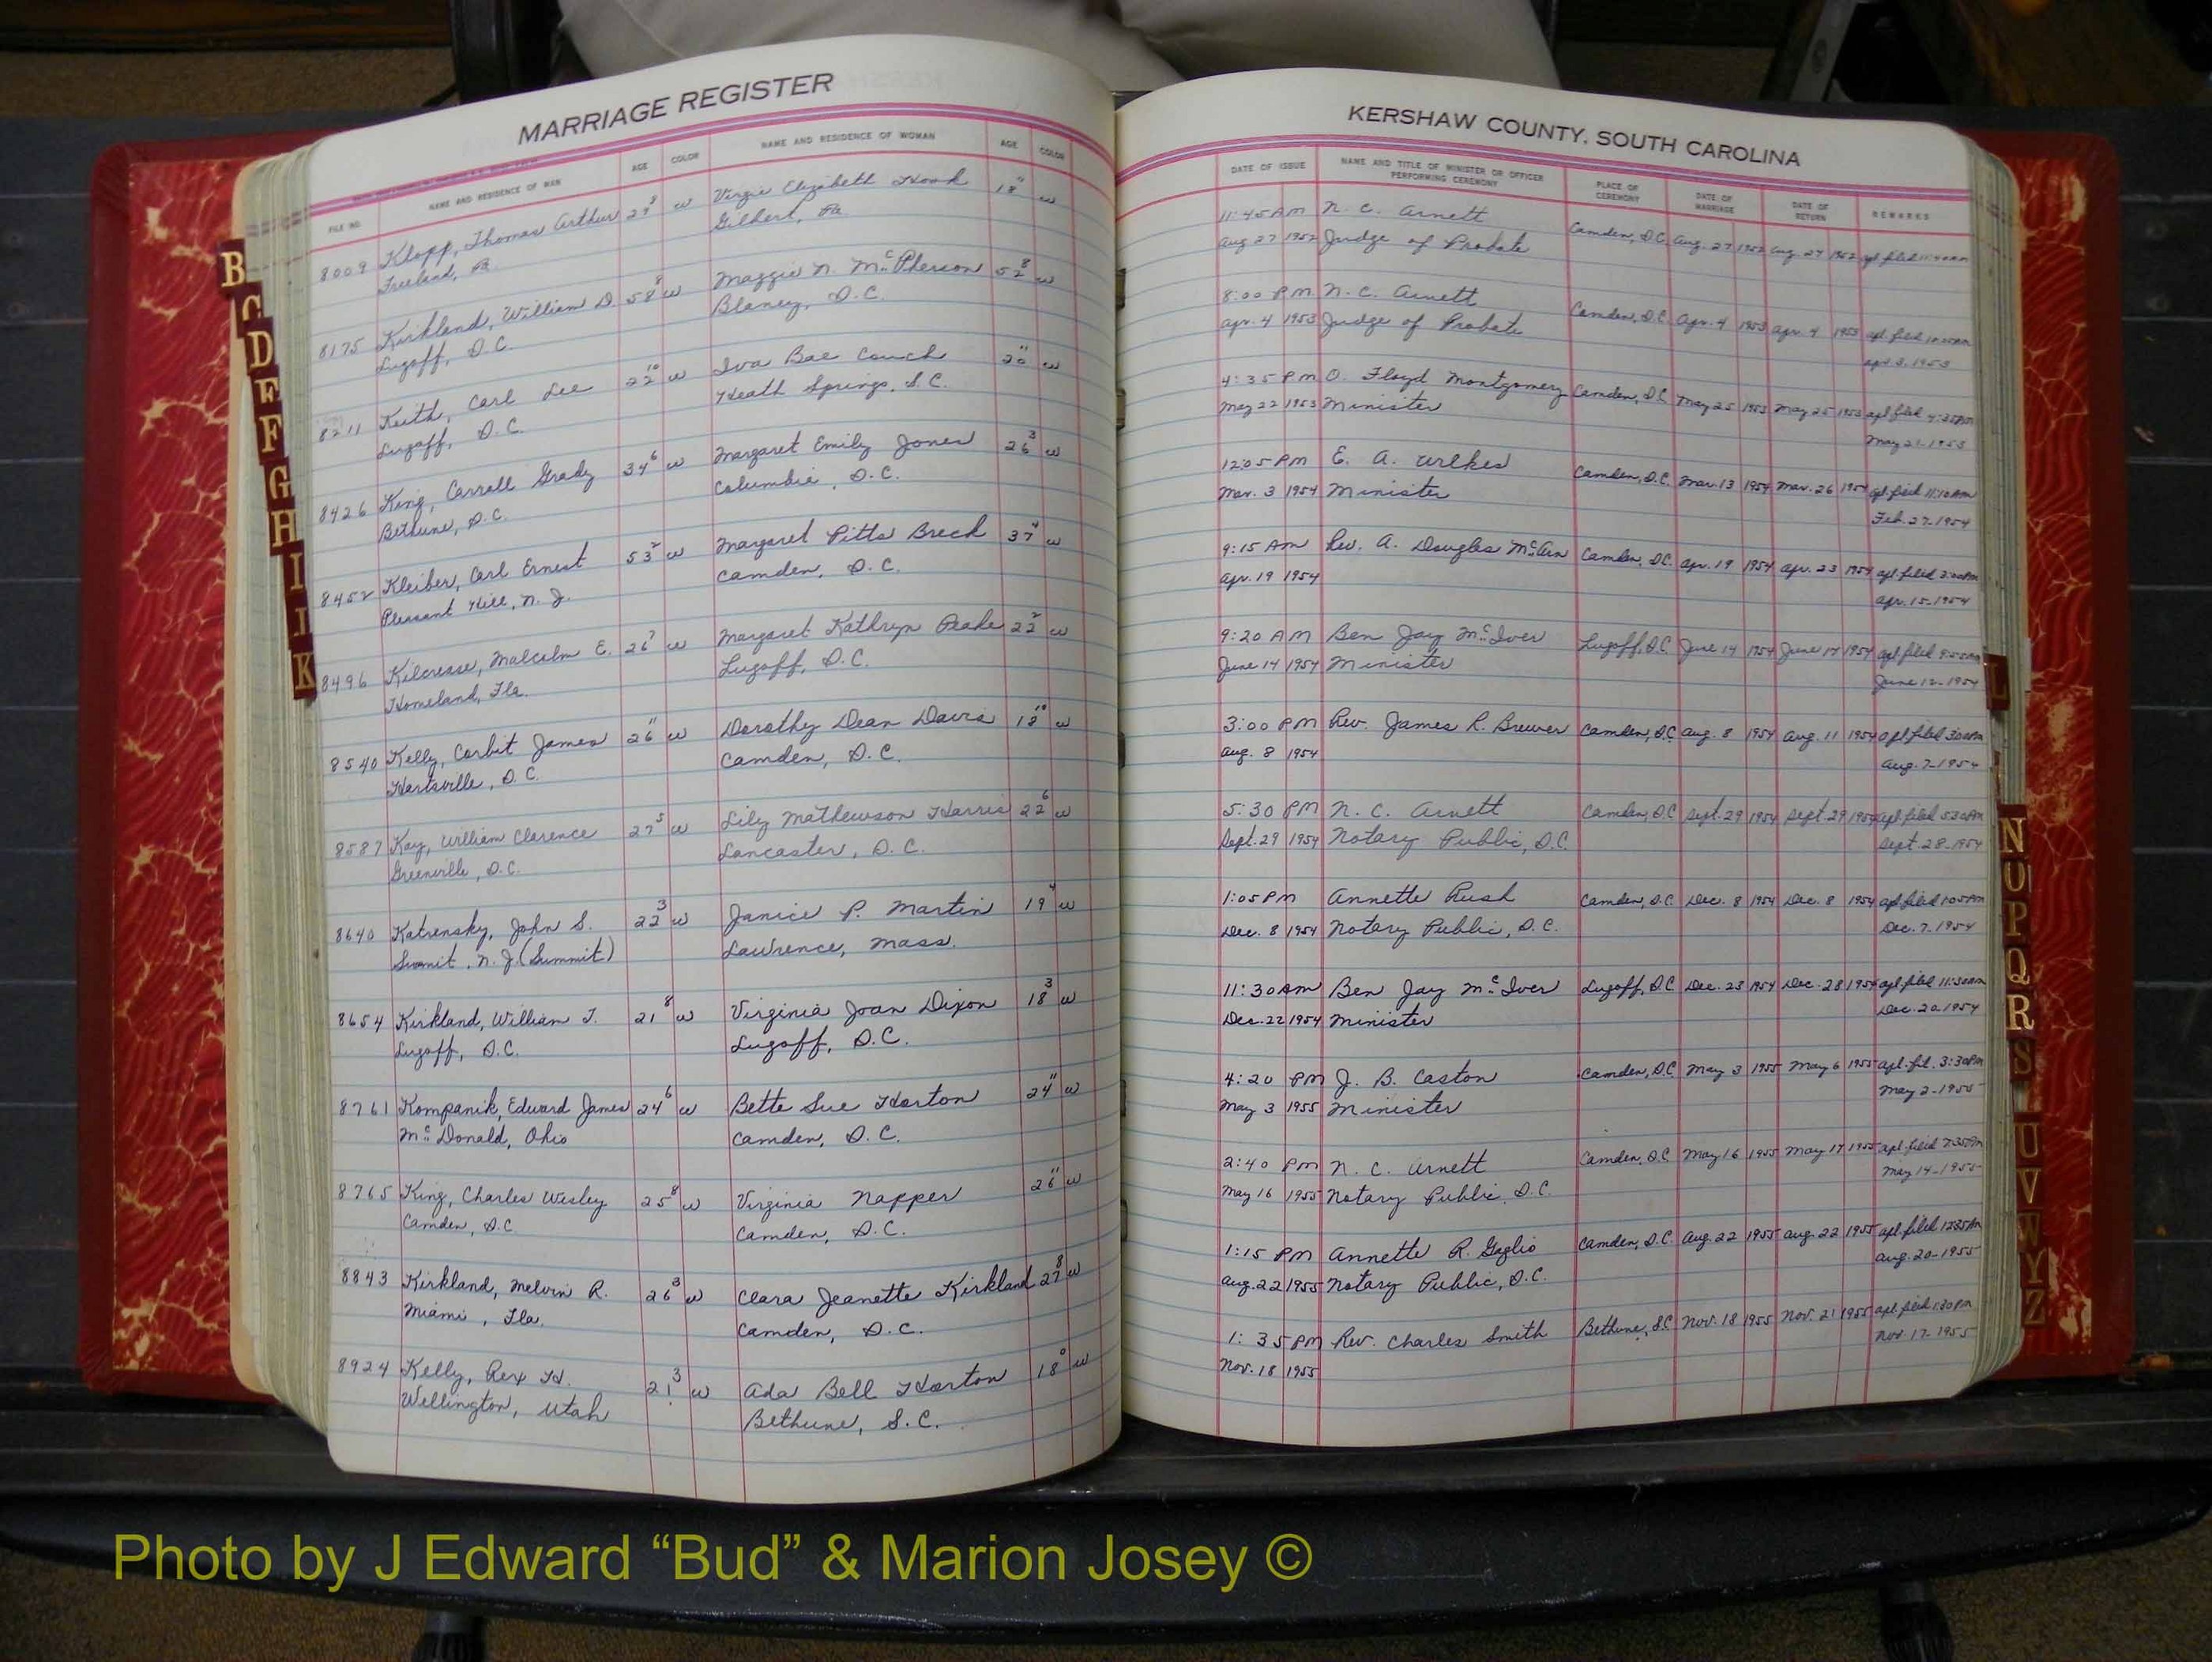 MARRIAGE REGISTER
FILE NO. NAME AND RESIDENCE OF MAN AGE COLOR NAME AND RESIDENCE OF WOMAN AGE COLOR
8009 Klopp, Thomas Arthur w Virgie Elizabeth Hook 18 w
Freeland, Pa. Gilbert, Pa
8175 Kirkland, William D. 58 8 w Maggie N. McPherson 52 8 w
Lugoff, S.C. Blaney, S.C.
8211 Keith, Carl Lee 22 10 w Iva Bae Couch 20 11 w
Lugoff, S.C. Heath Springs, S.C.
8426 King, Carroll Grady 34 6 w Margaret Emily Jones 26 3 w
Bethune, S.C. Columbia, S.C.
8452 Kleiber, Carl Ernest 53 2 w Margaret Pitts Brech 37 4 w
Pleasant Hill, N.J. Camden, S.C.
8496 Kilcrease, Malcolm E. 26 7 w Margaret Kathryn Peake 22 2 w
Homeland, Fla. Lugoff, S.C.
8540 Kelly, Corbit James 26 11 w Dorothy Dean Davis 18 10 w
Hartsville, S.C. Camden, S.C.
8587 Kay, William Clarence 27 5 w Lily Mathewson Harris 22 6 w
Greenville, S.C. Lancaster, S.C.
8640 Katrensky, John S. 22 3 w Janice P. Martin 19 4 w
Summit, N.J. (Summit) Lawrence, Mass.
8654 Kirkland, William T. 21 8 w Virginia Joan Dixon 18 3 w
Lugoff, S.C. Lugoff, S.C.
8761 Kompanik, Edward James 24 6 w Bette Sue Horton 24 11 w
McDonald, Ohio Camden, S.C.
8765 King, Charles Wesley 25 8 w Virginia Napper 26 11 w
Camden, S.C. Camden, S.C.
8843 Kirkland, Melvin R. 26 3 w Clara Jeanette Kirkland 27 8 w
Miami, Fla. Camden, S.C.
8924 Kelly, Rex H. 21 3 w Ada Bell Horton 18 0 w
Wellington, Utah Bethune, S.C.
KERSHAW COUNTY, SOUTH CAROLINA
DATE OF ISSUE NAME AND TITLE OF MINISTER OR OFFICER PERFORMING CEREMONY PLACE OF CEREMONY DATE OF MARRIAGE DATE OF RETURN REMARKS
11:45 AM N. C. Arnett Camden, S.C. Aug. 27 1952 Aug. 27 1952 apl. filed
Aug 27 1952 Judge of Probate
8:00 PM N. C. Arnett Camden, S.C. Apr. 4 1953 Apr. 4 1953 apl. filed
Apr. 4 1953 Judge of Probate Apr. 3, 1953
4:35 PM O. Floyd Montgomery Camden, S.C. May 25 1953 May 25 1953 apl filed 4:35PM
May 22 1953 Minister May 21-1953
12:05 PM E. A. Wilkes Camden, S.C. Mar. 13 1954 Mar. 26 1954 apl. filed 11:10AM
Mar. 3 1954 Minister Feb. 27-1954
9:15 AM Rev. A. Douglas McArn Camden, S.C. Apr. 19 1954 Apr. 23 1954 apl. filed 2:00PM
Apr. 19 1954 Apr. 15-1954
9:20 AM Ben Jay McIver Lugoff, S.C. June 14 1954 June 14 1954 apl filed
June 14 1954 Minister June 12-1954
3:00 PM Rev. James R. Brewer Camden, S.C. Aug. 8 1954 Aug. 11 1954 apl filed
Aug. 8 1954 Aug. 7-1954
5:30 PM N. C. Arnett Camden, S.C. Sept. 29 1954 Sept. 29 1954 apl. filed 5:30PM
Sept. 29 1954 Notary Public, S.C. Sept. 28-1954
1:05 PM Annette Rush Camden, S.C. Dec. 8 1954 Dec. 8 1954 apl filed 1:05PM
Dec. 8 1954 Notary Public, S.C. Dec. 7, 1954
11:30 AM Ben Jay McIver Lugoff, S.C. Dec. 23 1954 Dec. 28 1954 apl. filed 11:30AM
Dec. 22 1954 Minister Dec. 20, 1954
4:20 PM J. B. Caston Camden, S.C. May 3 1955 May 6 1955 apl. fil. 3:30PM
May 3 1955 Minister May 2-1955
2:40 PM N. C. Arnett Camden, S.C. May 16 1955 May 17 1955 apl. filed
May 16 1955 Notary Public, S.C. May 14-1955
1:15 PM Annette R. Gaglio Camden, S.C. Aug. 22 1955 Aug. 22 1955 apl. filed
Aug. 22 1955 Notary Public, S.C. Aug. 20-1955
1:35 PM Rev. Charles Smith Bethune, S.C. Nov. 18 1955 Nov. 21 1955 apl. filed 1:30PM
Nov. 18 1955 Nov. 17-1955
B
C
D
E
F
G
H
I
J
K
L
N
O
P
Q
R
S
U
V
W
Y
Z
Photo by J Edward “Bud” & Marion Josey ©